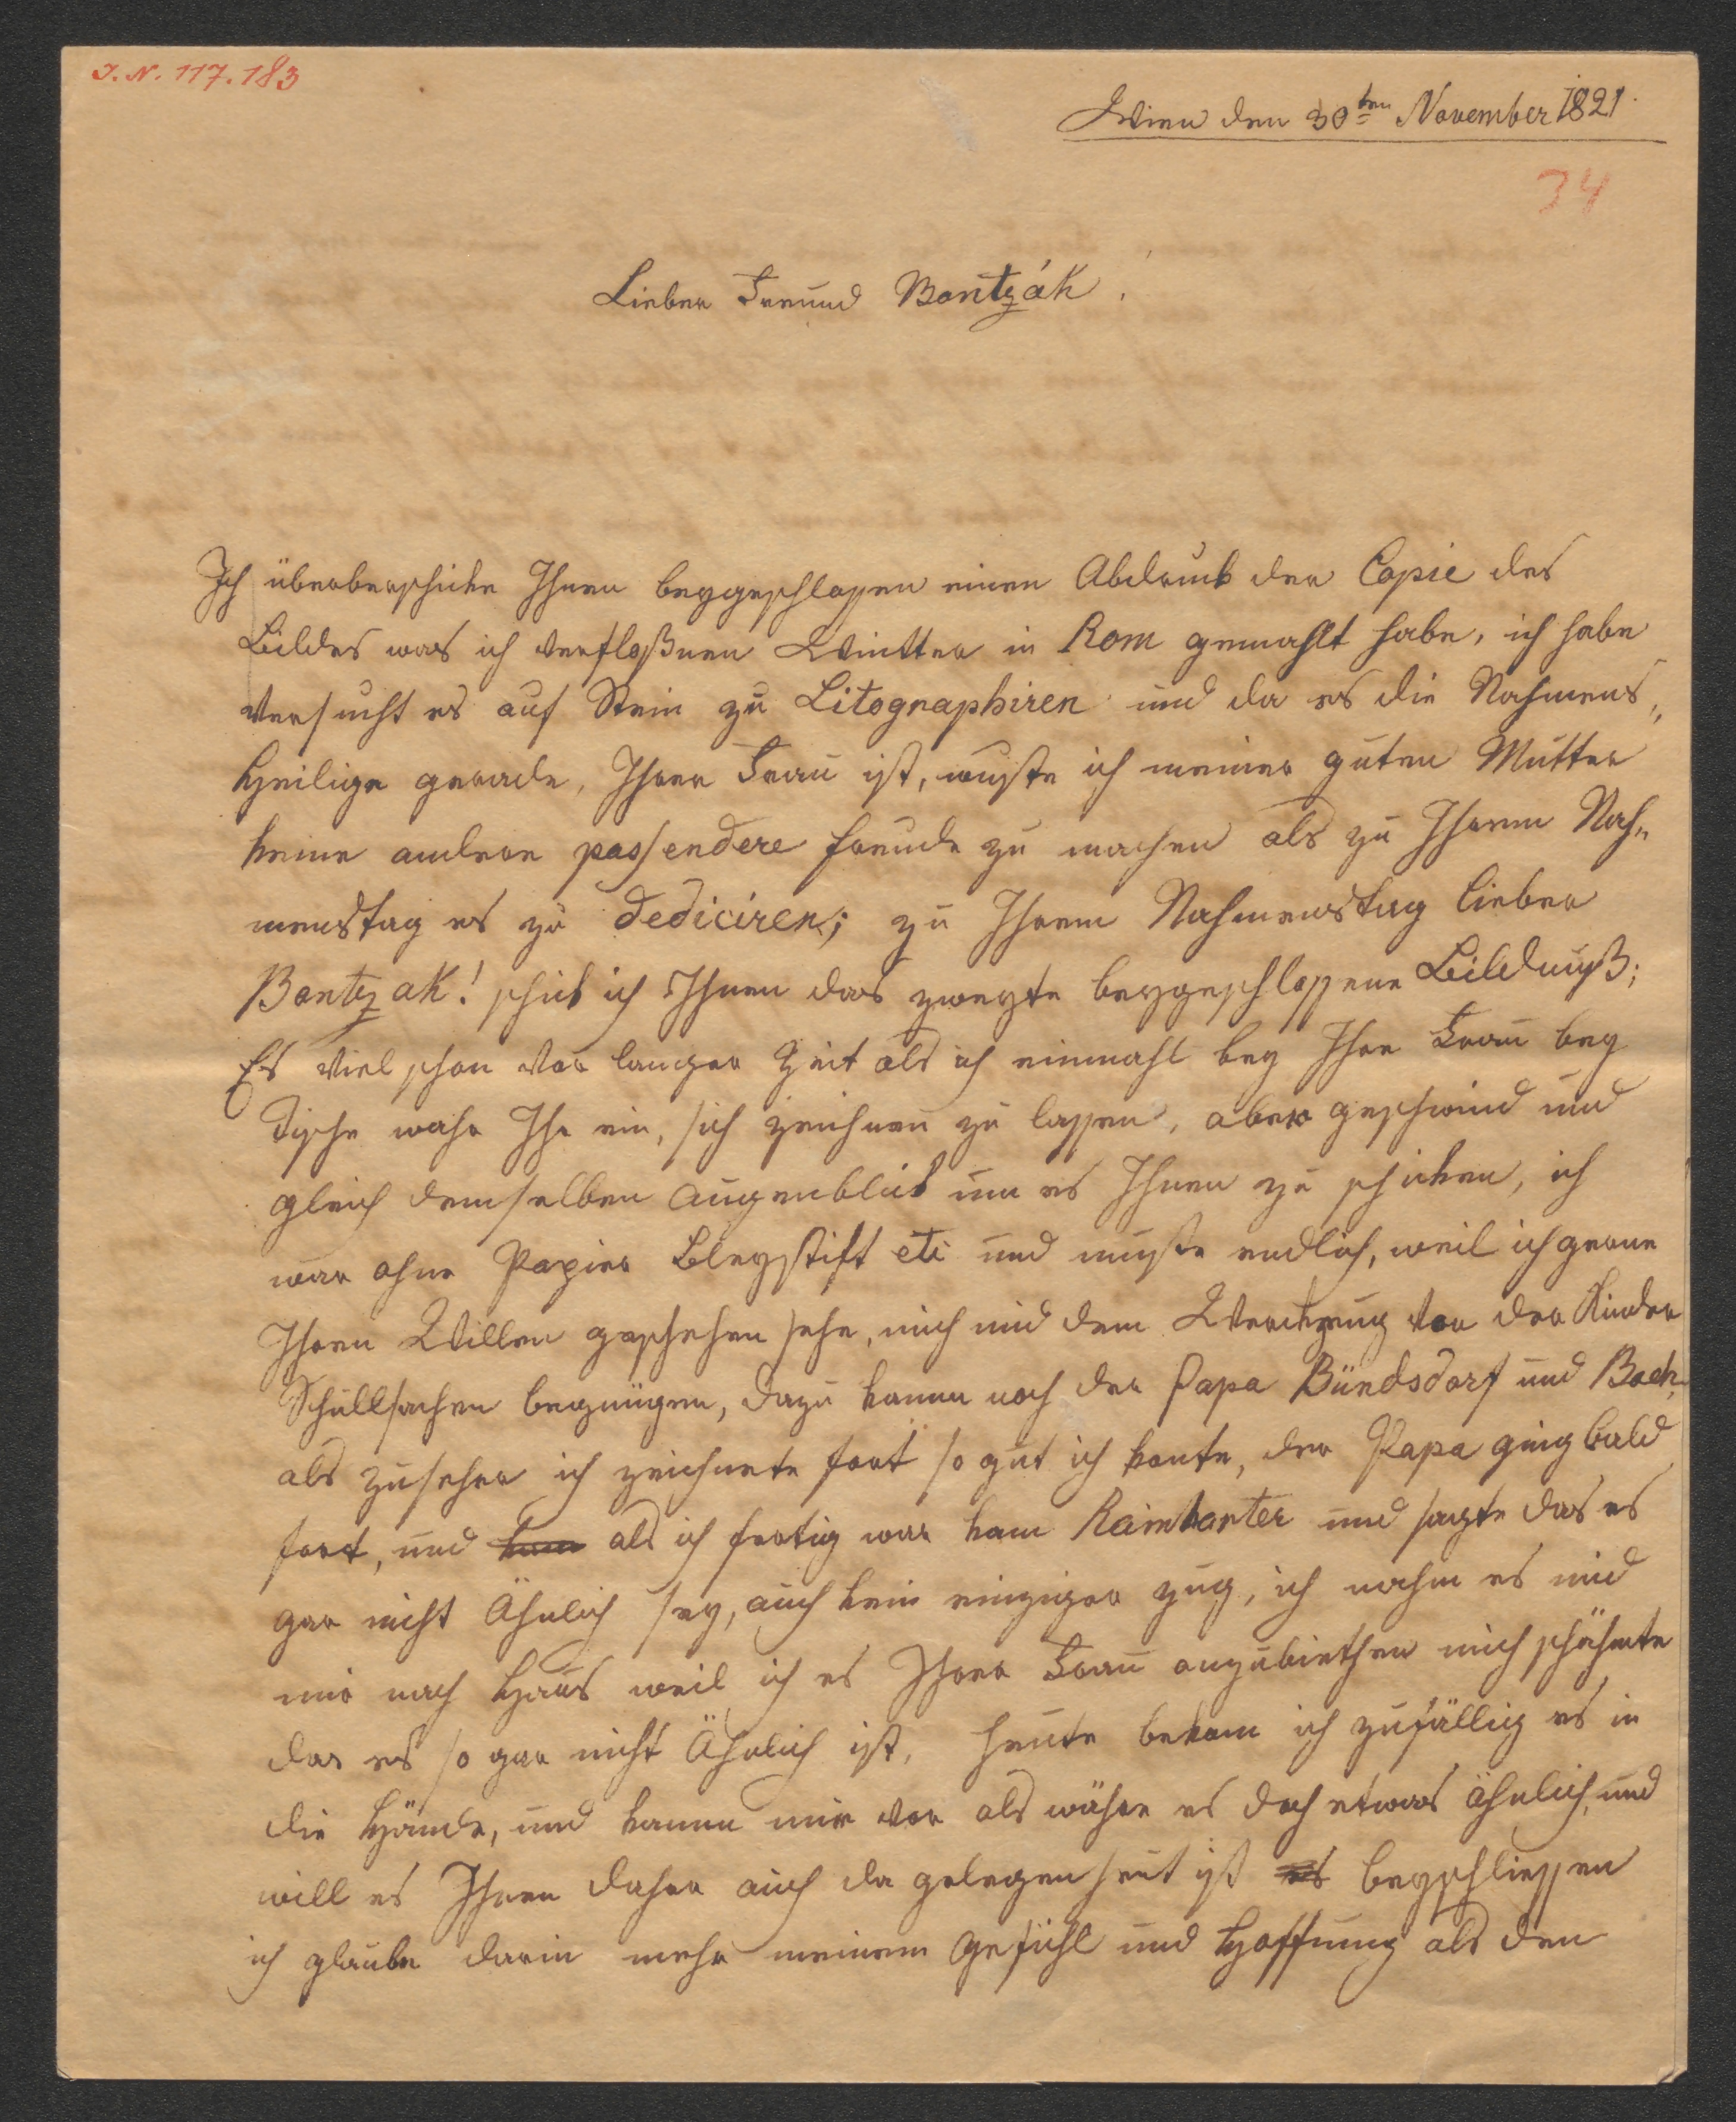 I. N. 117.183
Wien den 30ten November 1821.
34
Lieber Freund Bontzák!
Ich überberschicke Ihnen beygeschlossen einen Abdruck der Copie des
Bildes was ich verfloßnen Wintter in Rom gemahlt habe, ich habe
versucht es auf Stein zu Litographiren und da es die Nahmens„
Heilige gerade, Ihrer Frau ist, wuste ich meiner guten Mutter
keine andere passendere freude zu machen als zu Ihrem Nah„
menstag es zu dediciren; zu Ihrem Nahmenstag lieber
Bontzak! schick ich Ihnen das zweyte beygeschlossene Bildniß;
Es viel schon vor langer Zeit als ich einmahl bey Ihre Frau bey
Tische wahr Ihr ein, sich zeichnen zu lassen, aber geschwind und
gleich demselben augenblick um es Ihnen zu schicken, ich
war ohne Papier Bleystift etc und muste endlich, weil ich gerne
Ihren Willen geschehen sehe, mich mit dem Werckzeug von der Kinder
Schullsachen begnügen, dazu kamen noch der Papa Bündsdorf und Bach,
als zuseher ich zeichnete fort so gut ich konte, der Papa ging bald
fort, und kam als ich fertig war kam und sagte das es
gar nicht Ähnlich sey, auch kein einziger zug, ich nahm es mit
mir nach Haus weil ich es Ihrer Frau anzubiethen mich schähmte
das es so gar nicht Ähnlich ist, heute bekam ich zufällig es in
die Hände, und kamm mir vor als währe es doch etwas ähnlich, und
will es Ihnen daher auch da gelegenheit ist es beyschliessen
ich glaube darin mehr meinem gefühl und Hoffnung als den